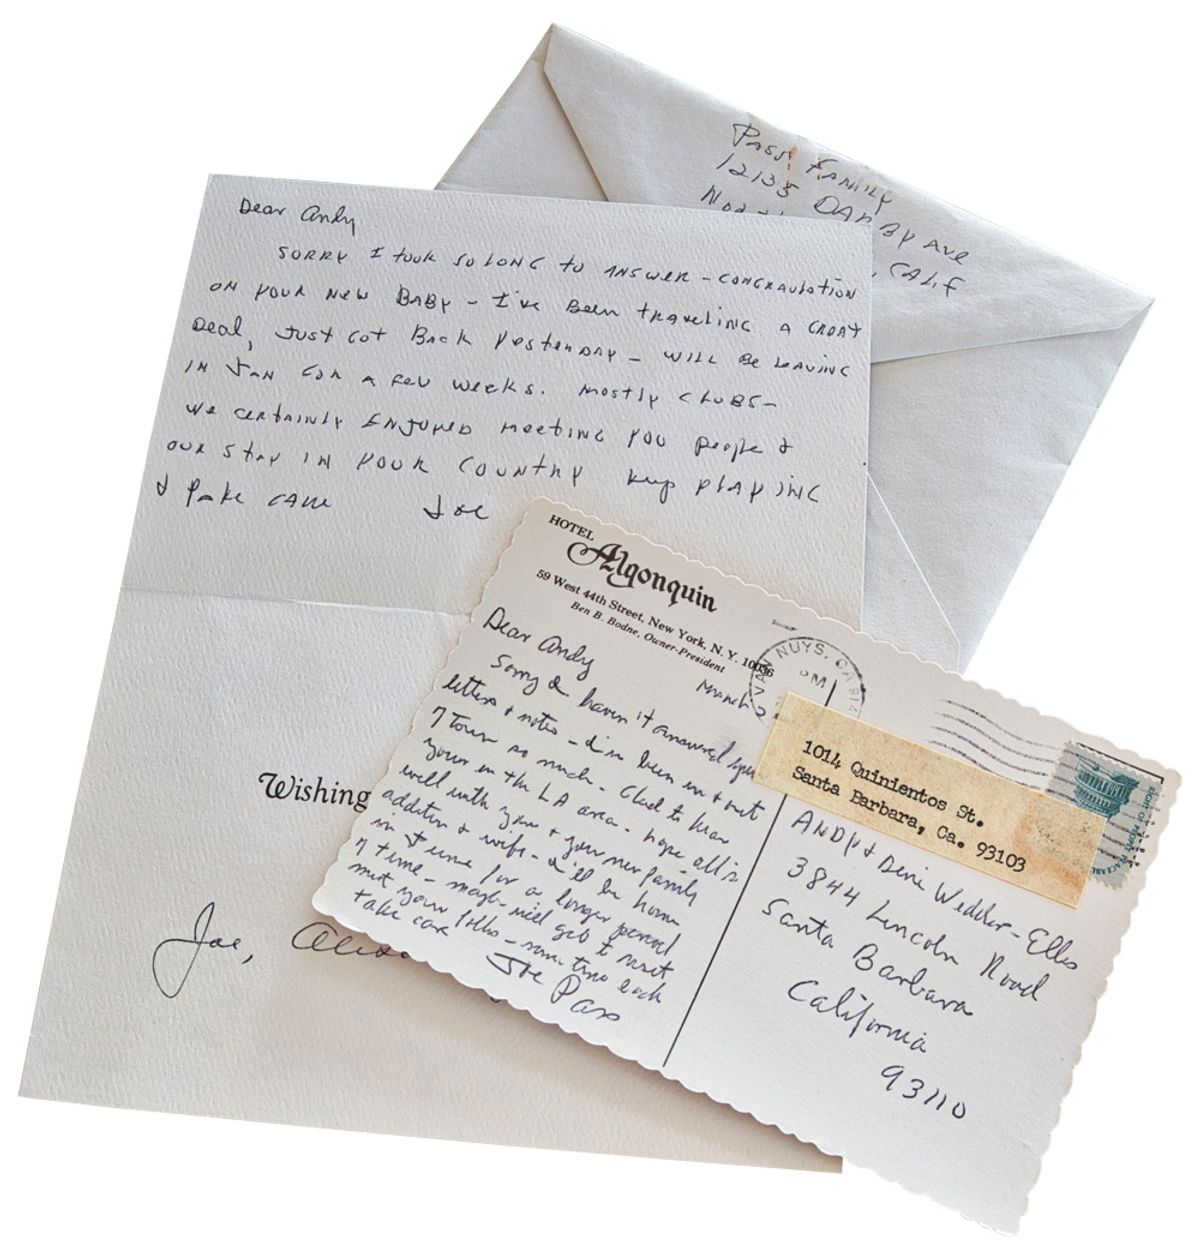 Pass Family
12135 DARBY AVE
CALIF
Dear Andy
SORRY I took SO LONG to ANSWER - CONGRAULATION
ON YOUR NEW BABY - I've Been TRAVELING A GREAT
Deal, Just GOT Back Yesterday - WILL BE LEAVING
IN JAN FOR A FEW WEEKS. MOSTLY CLUBS -
We CERTAINLY ENJOYED MEETING YOU people &
OUR STAY IN YOUR COUNTRY keep PLAYING
& Take CARE Joe
Wishing
Joe,
HOTEL
Algonquin
59 West 44th Street, New York, N. Y. 10036
Ben B. Bodne, Owner-President
March 2
Dear Andy
Sorry I haven't answered your
letters & notes - I'm been in & out
7 Town so much - Glad to hear
your in the LA area - hope all is
well with you & your new family
addition & wife - I'll be home
in June for a longer period
7 time - maybe will get to meet
met your folks - some time back
take care
Joe Pass
VAN NUYS, CA
PM
1014 Quinientos St.
Santa Barbara, Ca. 93103
ANDY & Deni Wedder-Ellis
3844 Lincoln Road
Santa Barbara
California
93110